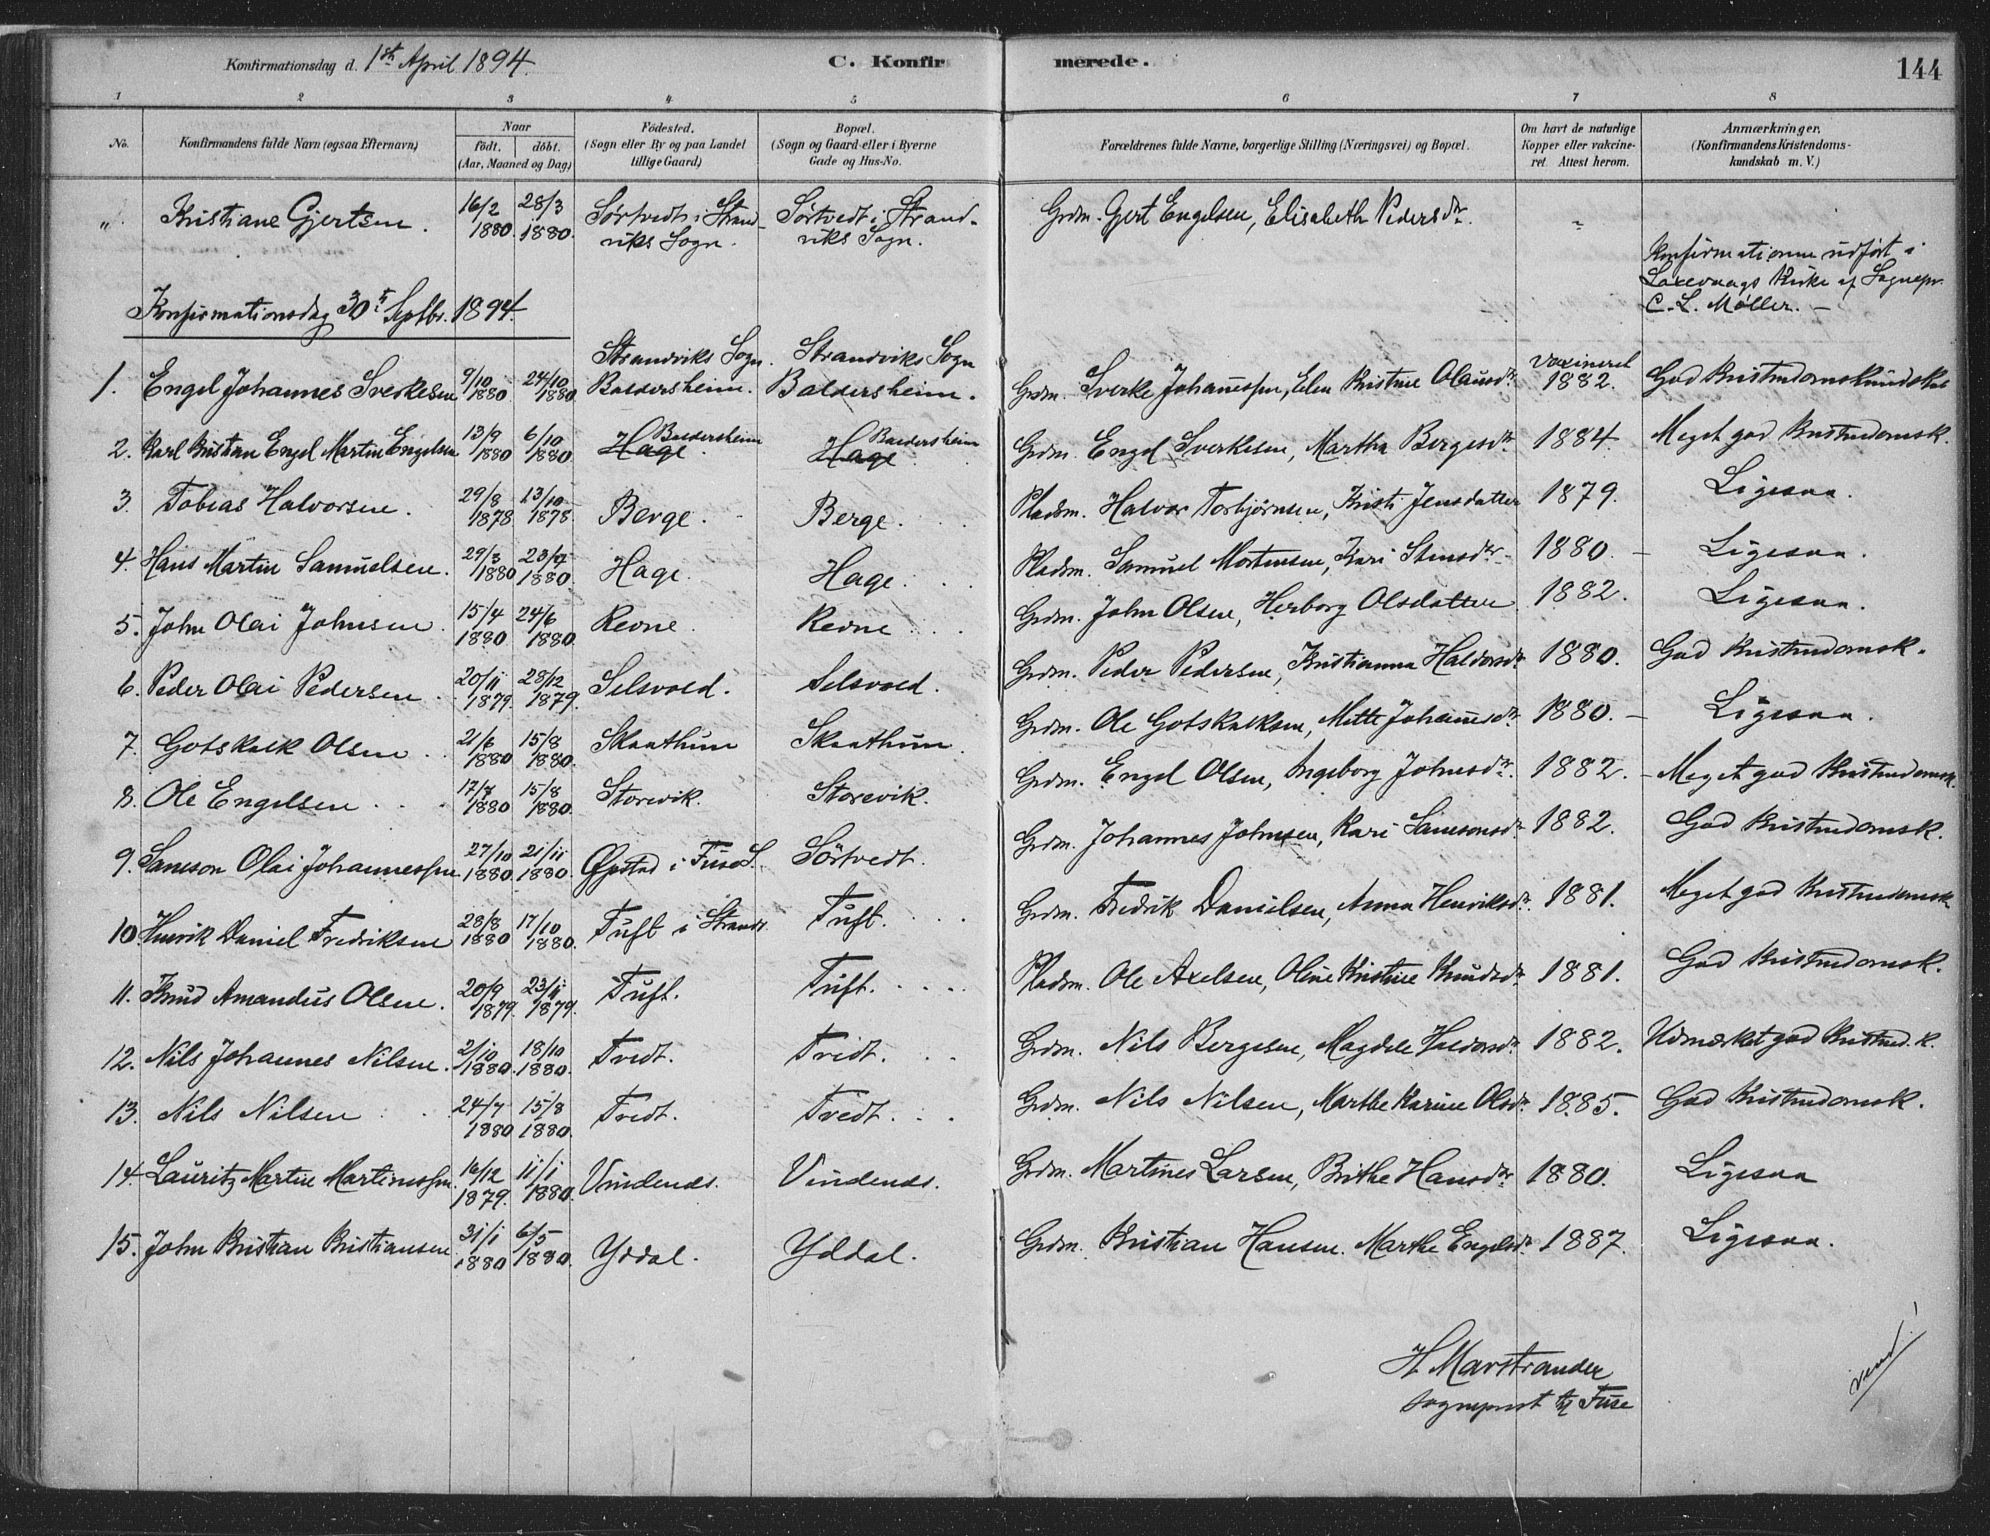 Konfirmationsdag d. 1ste April 1894. C. Konfirmerede. 144
1 2 3 4 5 6 7 8
No. Konfirmandens fulde Navn (ogsaa Efternavn) Naar født. døbt. (Aar, Maaned og Dag) Fødested. (Sogn eller By og paa Landet tillige Gaard) Bopæl. (Sogn og Gaard eller i Byerne Gade og Hus-No. Forældrenes fulde Navne, borgerlige Stilling (Næringsvei) og Bopæl. Om havt de naturlige Kopper eller vakcineret. Attest herom. Anmærkninger. (Konfirmandens Kristendomskundskab m. V.)
". Kristiane Gjertsen. 16/2 1880. 28/3 1880. Sørtvedt i Strandviks Sogn. Sørtvedt i Strandviks Sogn. Grdm. Gert Engelsen, Elisabeth Pedersdtr. "
Konfirmationen udført i
Laxevaags Kirke af Sognepr.
C. L. Møller. —
Konfirmationsdag 30te Septbr. 1894.
1. Engel Johannes Sverkesen 9/10 1880 24/10 1880 Strandviks Sogn. Baldersheim. Strandviks Sogn Baldersheim. Grdm. Sverke Johannessen, Elen Kristine Olausdtr. Vaxineret 1882. God Kristendomskundskab
2. Karl Kristian Engel Martin Engelsen 13/9 1880 6/10 1880 Hage Baldersheim Hage Baldersheim Grdm. Engel Sverkesen, Martha Bergesdtr 1884. Meget god Kristendomsk.
3. Tobias Halvorsen. 29/8 1878 13/10 1878. Berge. Berge. Pladsm. Halvor Torbjørnsen, Kristi Jensdatter 1879. Ligesaa.
4. Hans Martin Samuelsen. 29/3 1880 23/4 1880. Hage. Hage. Pladsm. Samuel Mortensen, Kari Stensdtr 1880. — Ligesaa.
5. John Olai Johnsen 15/4 1880 24/6 1880. Revne. Revne Grdm. John Olsen, Herborg Olsdatter 1882. Ligesaa.
6. Peder Olai Pedersen. 20/11 1879. 28/12 1879. Selsvold. Selsvold. Grdm. Peder Pedersen, Kristianna Haldorsdtr 1880. God Kristendomsk.
7. Gotskalk Olsen 21/6 1880 15/8 1880. Skaathun Skaathun. Grdm. Ole Gotskalksen, Mette Johannesdtr. 1880. — Ligesaa.
8. Ole Engelsen 17/7 1880 15/8 1880. Storevik. Storevik. Grdm. Engel Olsen, Ingeborg Johnsdtr. 1882. — Meget god Kristendomsk.
9. Samson Olai Johannessen 27/10 1880 21/11 1880. Opstad i Fuse S. Sørtvedt. Grdm. Johannes Johnsen, Kari Samsonsdtr 1882. God Kristendomsk.
10. Henrik Daniel Fredriksen 28/8 1880 17/10 1880. Tuft i Strandv. Tuft. Grdm. Fredrik Danielsen, Anna Henriksdtr. 1881. Meget god Kristendomsk
11. Knud Amandus Olsen. 20/9 1879. 23/11 1879. Tuft. Tuft. Pladsm. Ole Axelsen, Oline Kristine Knudsdtr 1881. God Kristendomsk.
12. Nils Johannes Nilsen. 2/10 1880. 18/10 1880. Tvedt. Tvedt. Grdm. Nils Bergesen, Magdele Haldorsdtr 1882. Udmærket god Kristend. k.
13. Nils Nilsen 24/7 1880 15/8 1880. Tvedt. Tvedt. Grdm. Nils Nilsen, Marthe Karine Olsdtr. 1885. God Kristendomsk.
14. Lauritz Martin Martinussen. 16/12 1879. 11/1 1880. Vindenes. Vindenes. Grdm. Martines Larsen, Brithe Hansdtr 1880. Ligesaa
15. John Kristian Kristiansen 31/1 1880 6/5 1880. Yddal. Yddal. Grdm. Kristian Hansen. Marthe Engelsdtr 1887. Ligesaa.
H Marstrander
Sogneprest til Fuse
vend!